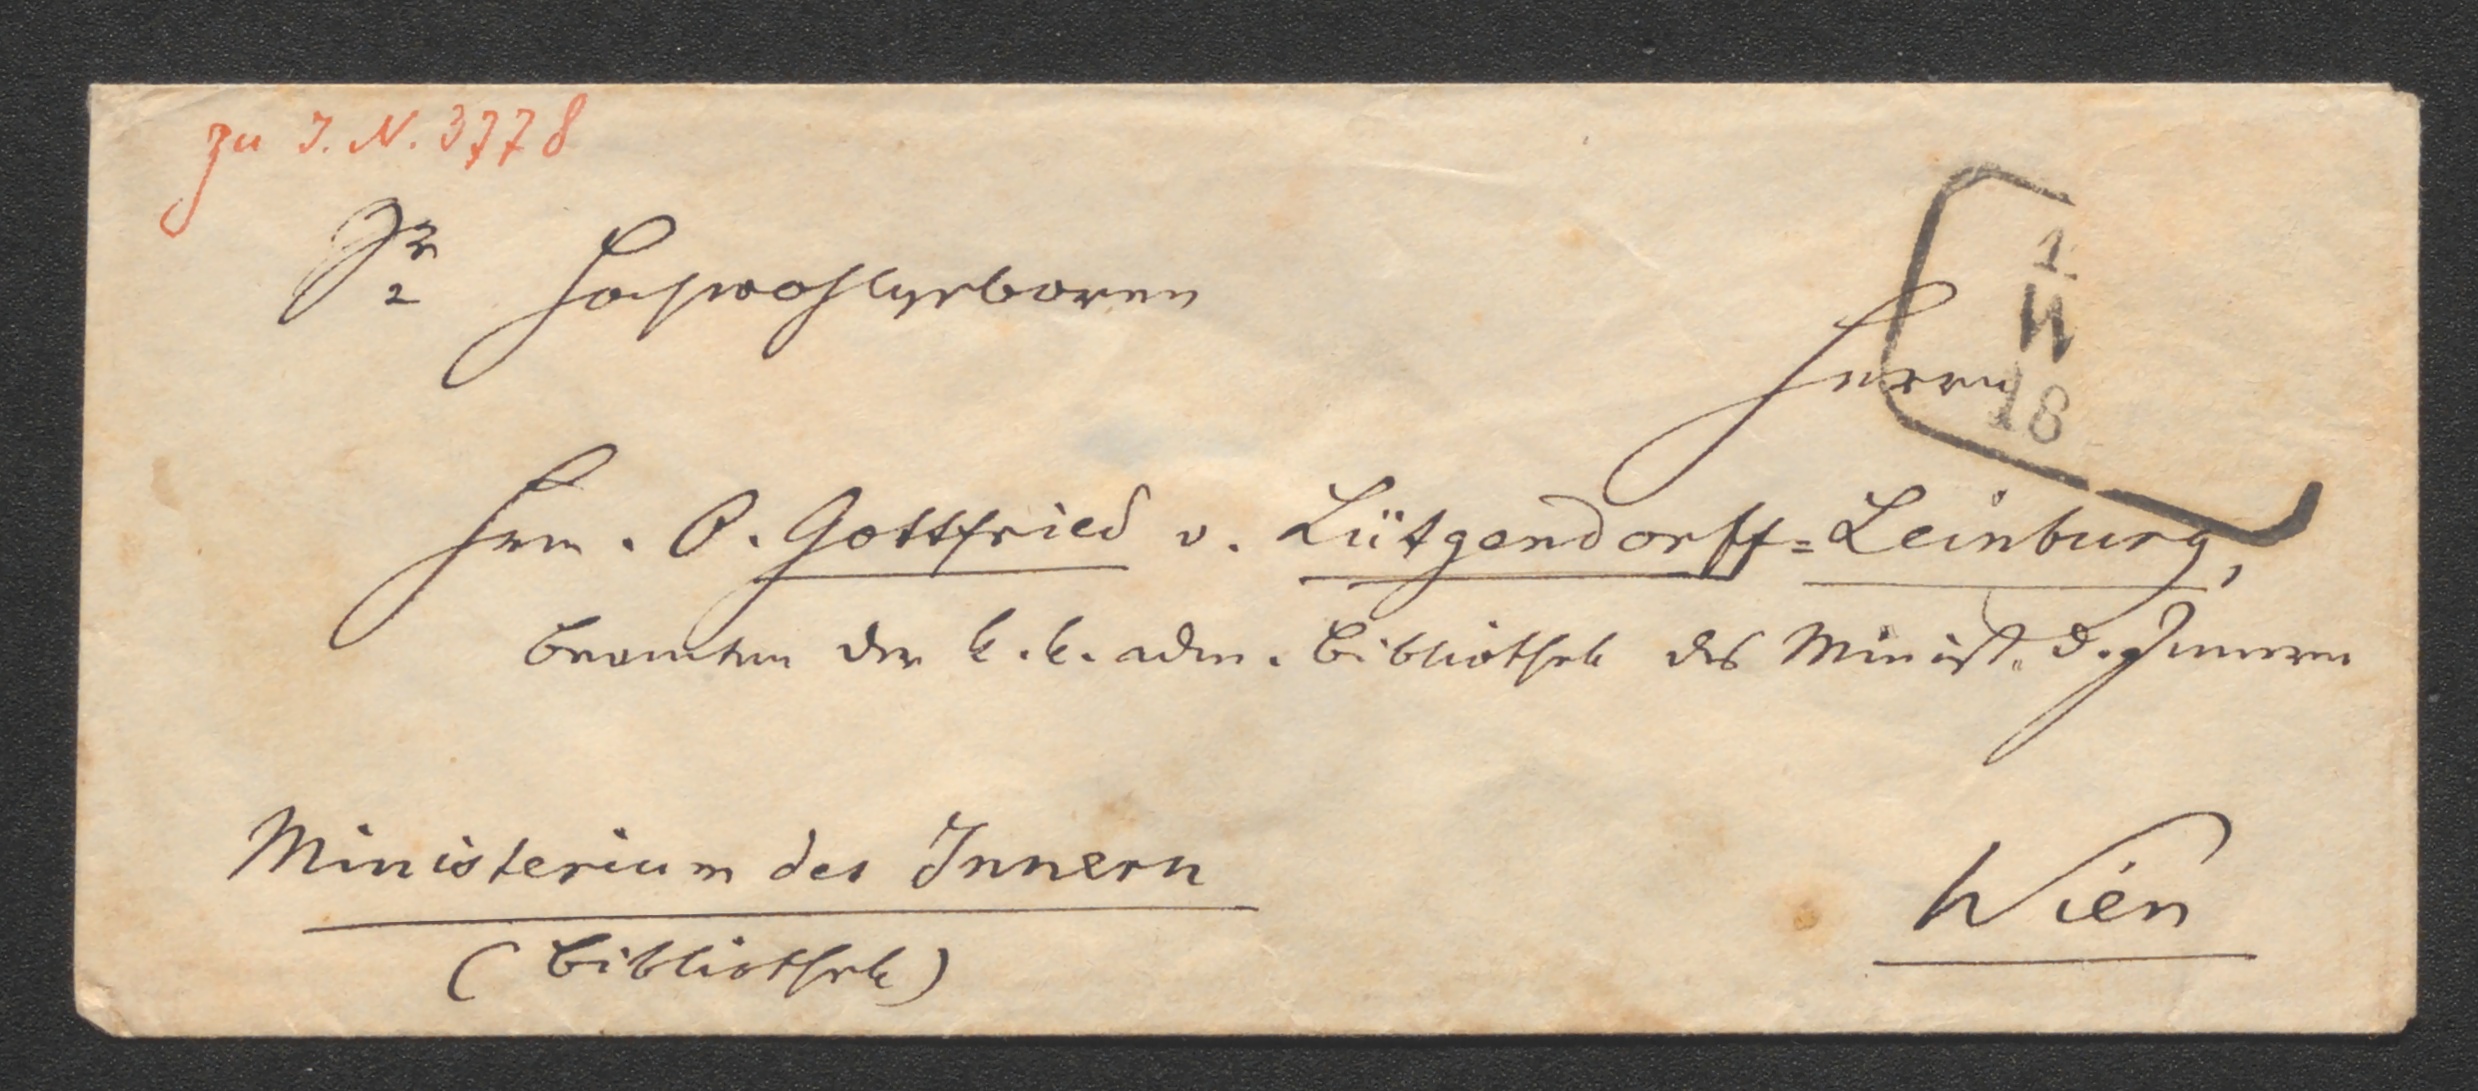 zu I. N. 3778
Sr Hochwohlgeboren
1
W
18
Herrn
Hrn. O. Gottfried v. Lütgendorff=Leinburg,
Beamten der k. k. adm. Bibliothek des Minist. d. Innern
Ministerium des Innern
(Bibliothek)
Wien